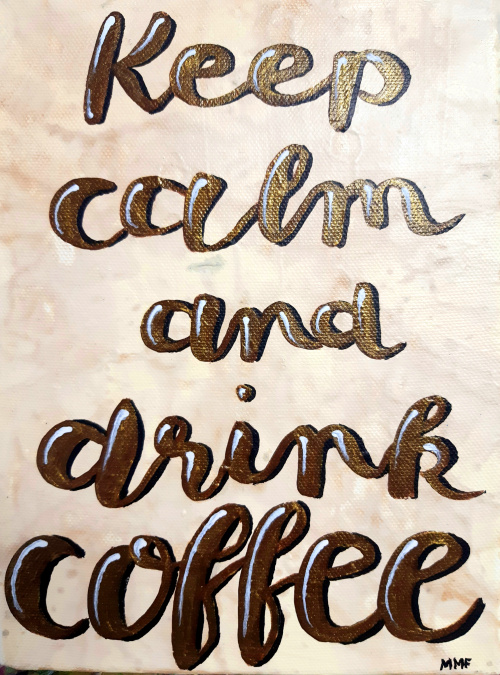 Keep
calm
and
drink
coffee
MMF